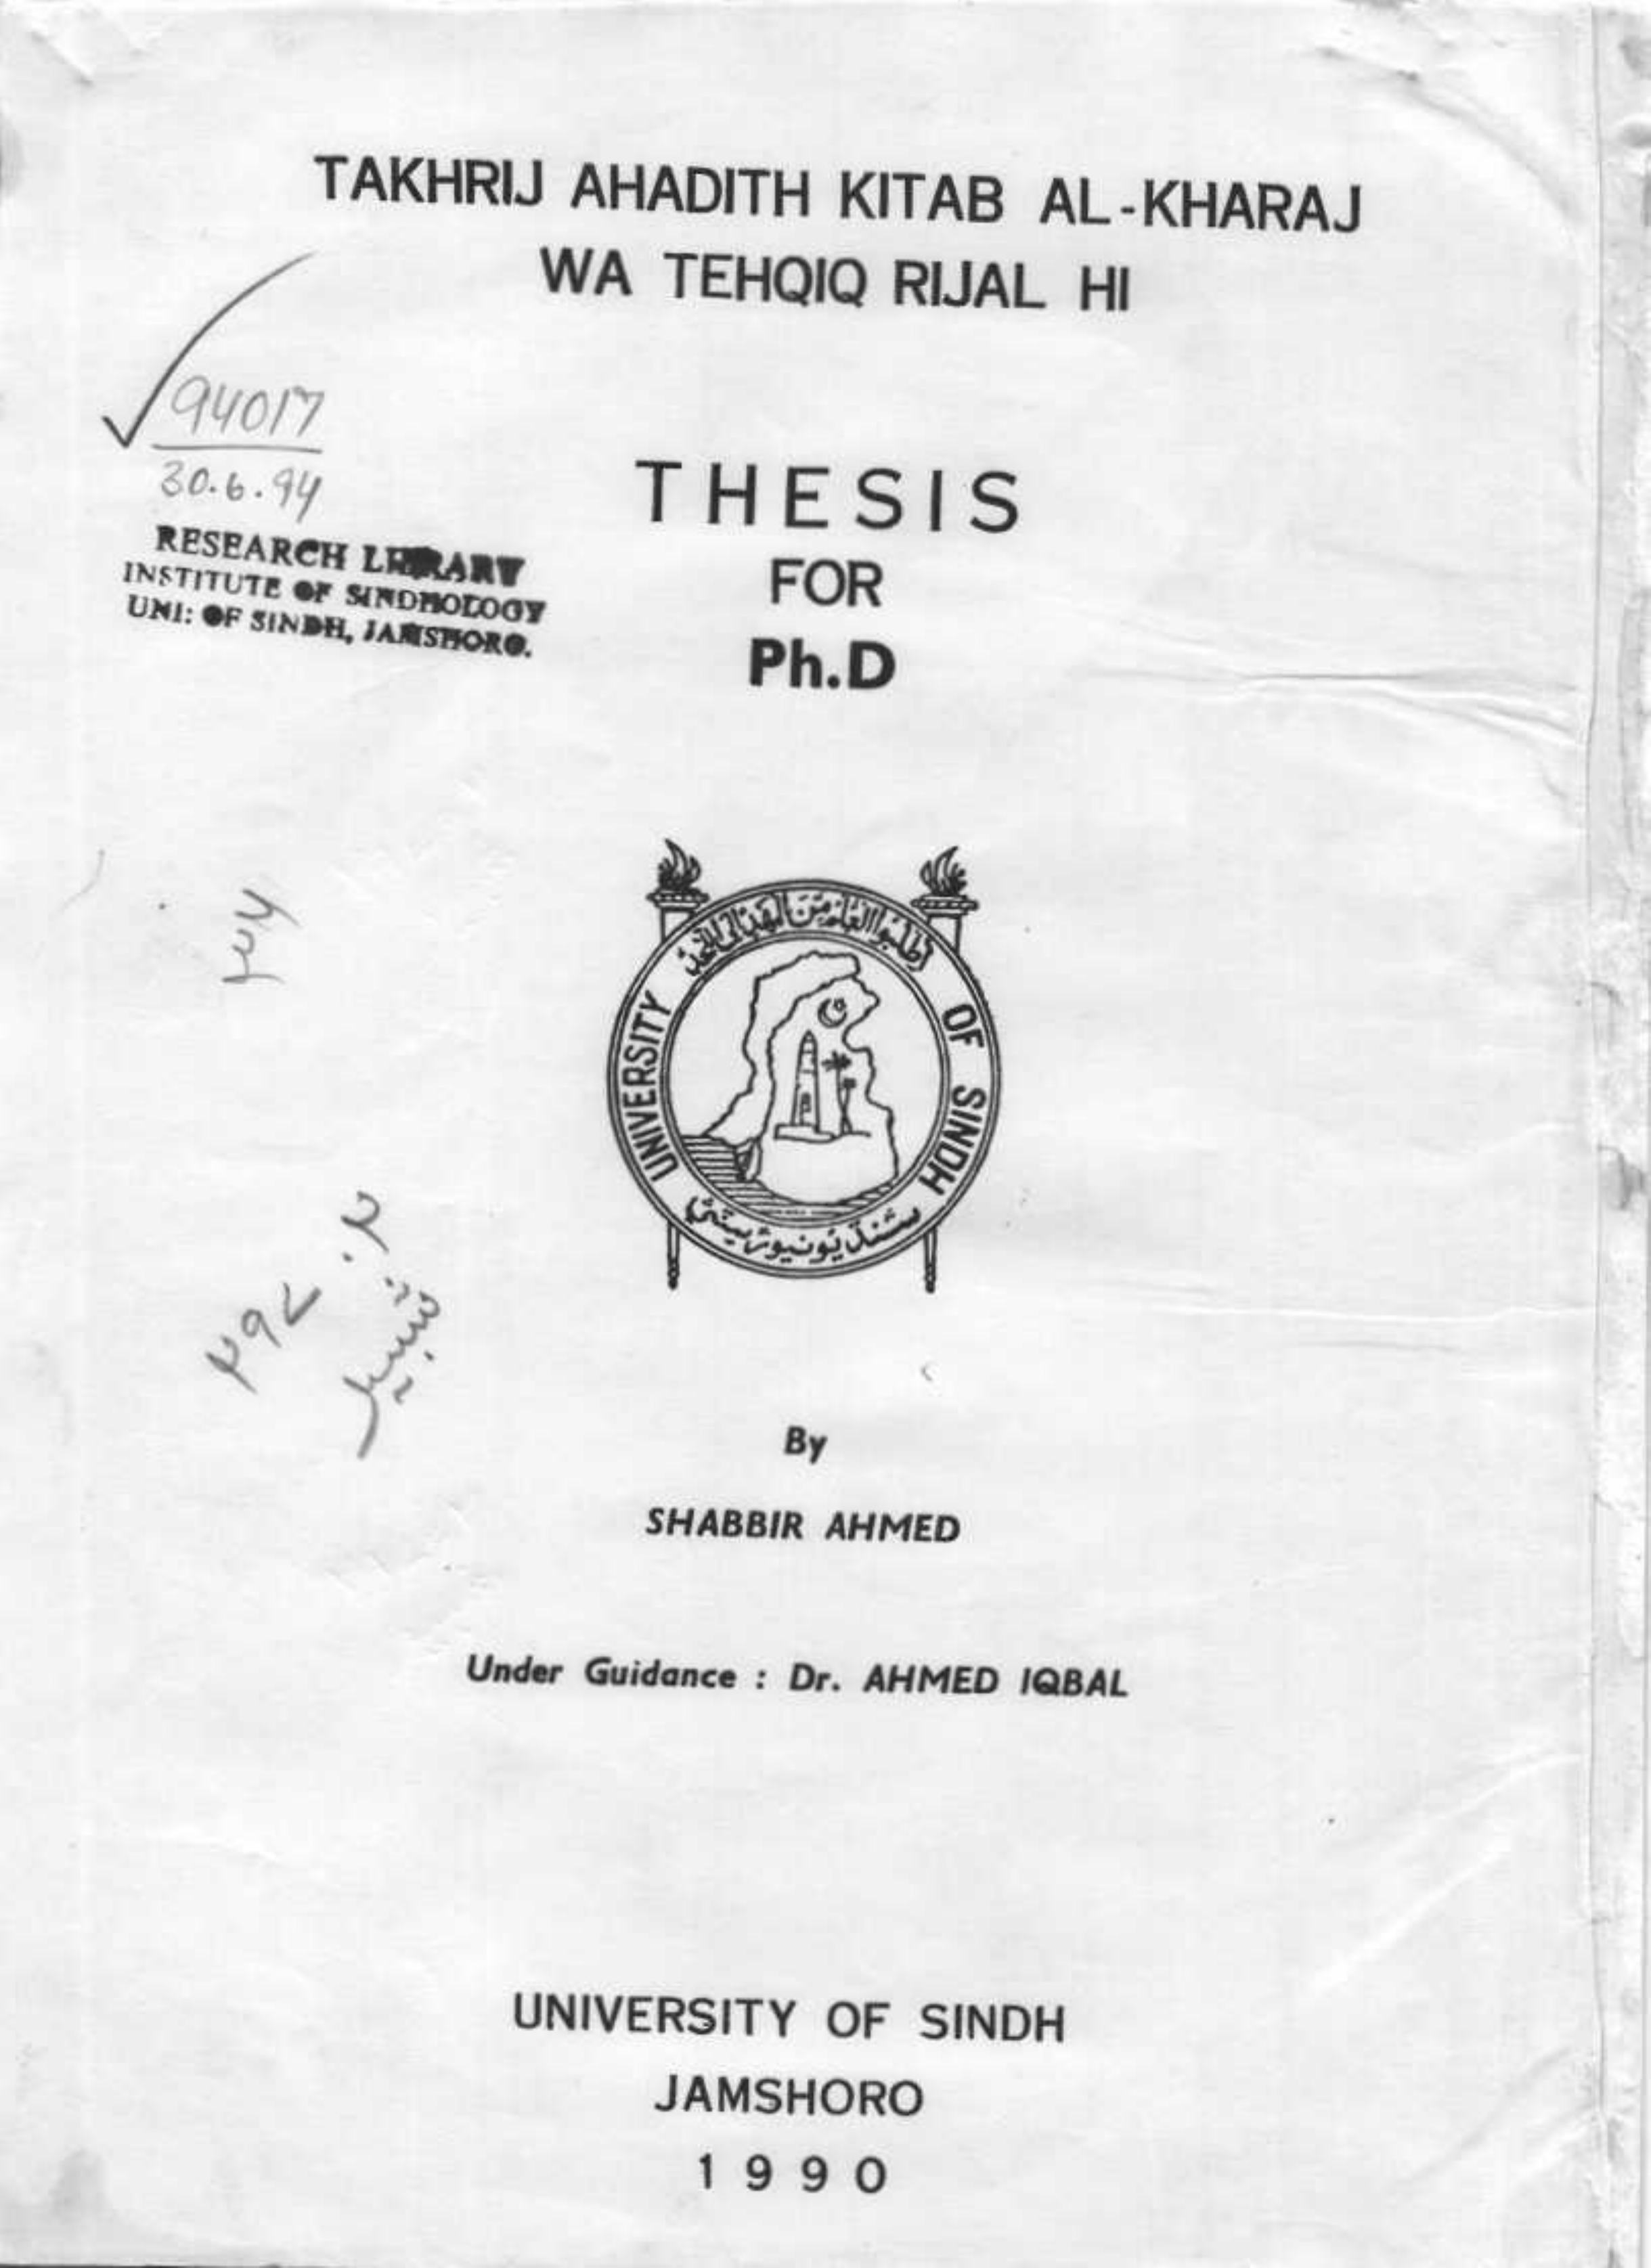 TAKHRIJ AHADITH KITAB AL-KHARAJ
WA TEHQIQ RIJAL HI
94017
30.6.94
RESEARCH LIBRARY
INSTITUTE OF SINDHOLOGY
UNI: OF SINDH, JAMSHORO.
THESIS
FOR
Ph.D
اطلبوا العلم من المهد الى اللحد
UNIVERSITY OF SINDH
سنڌ يونيورسيٽي
۲۹۷
شبير
By
SHABBIR AHMED
Under Guidance : Dr. AHMED IQBAL
UNIVERSITY OF SINDH
JAMSHORO
1990